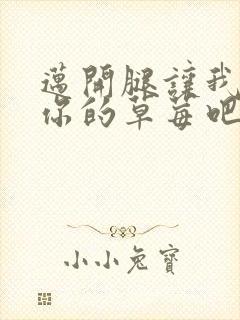 邁開腿讓我
你的草莓吧
小小兔寶